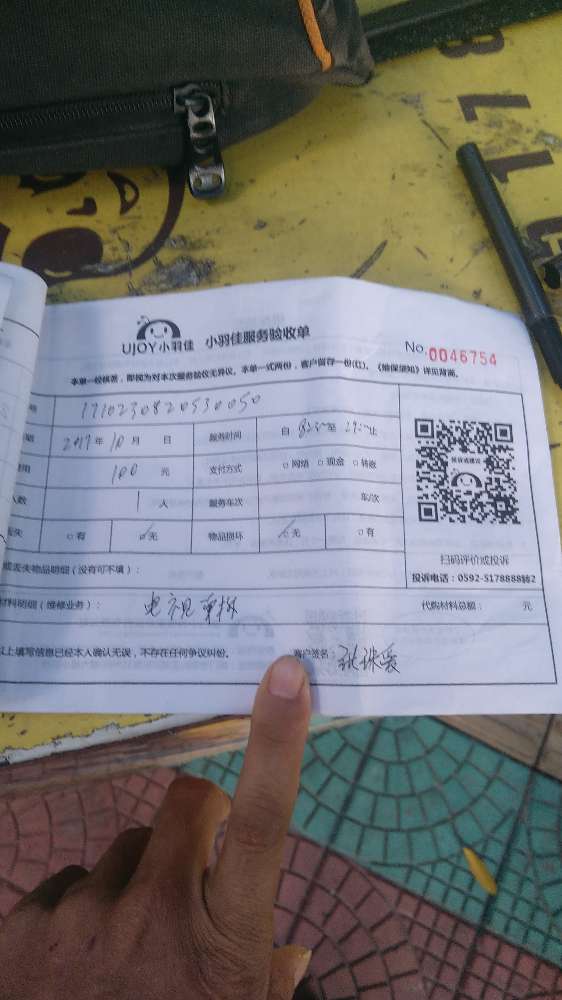 UJOY小羽佳 小羽佳服务验收单
No. 0046754
本单一经核签，即视为对本次服务验收无异议。本单一式两份，客户留存一份(红)。《维保须知》详见背面。
1710230820530050
2017年10月 日 服务时间 自 至 止
100 元 支付方式 □网络 □现金 □转账
人数 1人 服务车次 车/次
丢失 □有 □无 物品损坏 □无 □有
或丢失物品明细（没有可不填）：
扫码评价或投诉
投诉电话：0592-5178888转2
材料明细（维修业务）： 电视 代购材料总额： 元
以上填写信息已经本人确认无误，不存在任何争议纠纷。 客户签名：